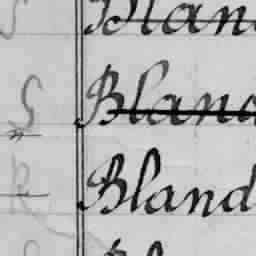 Bland
S Bland
R Bland